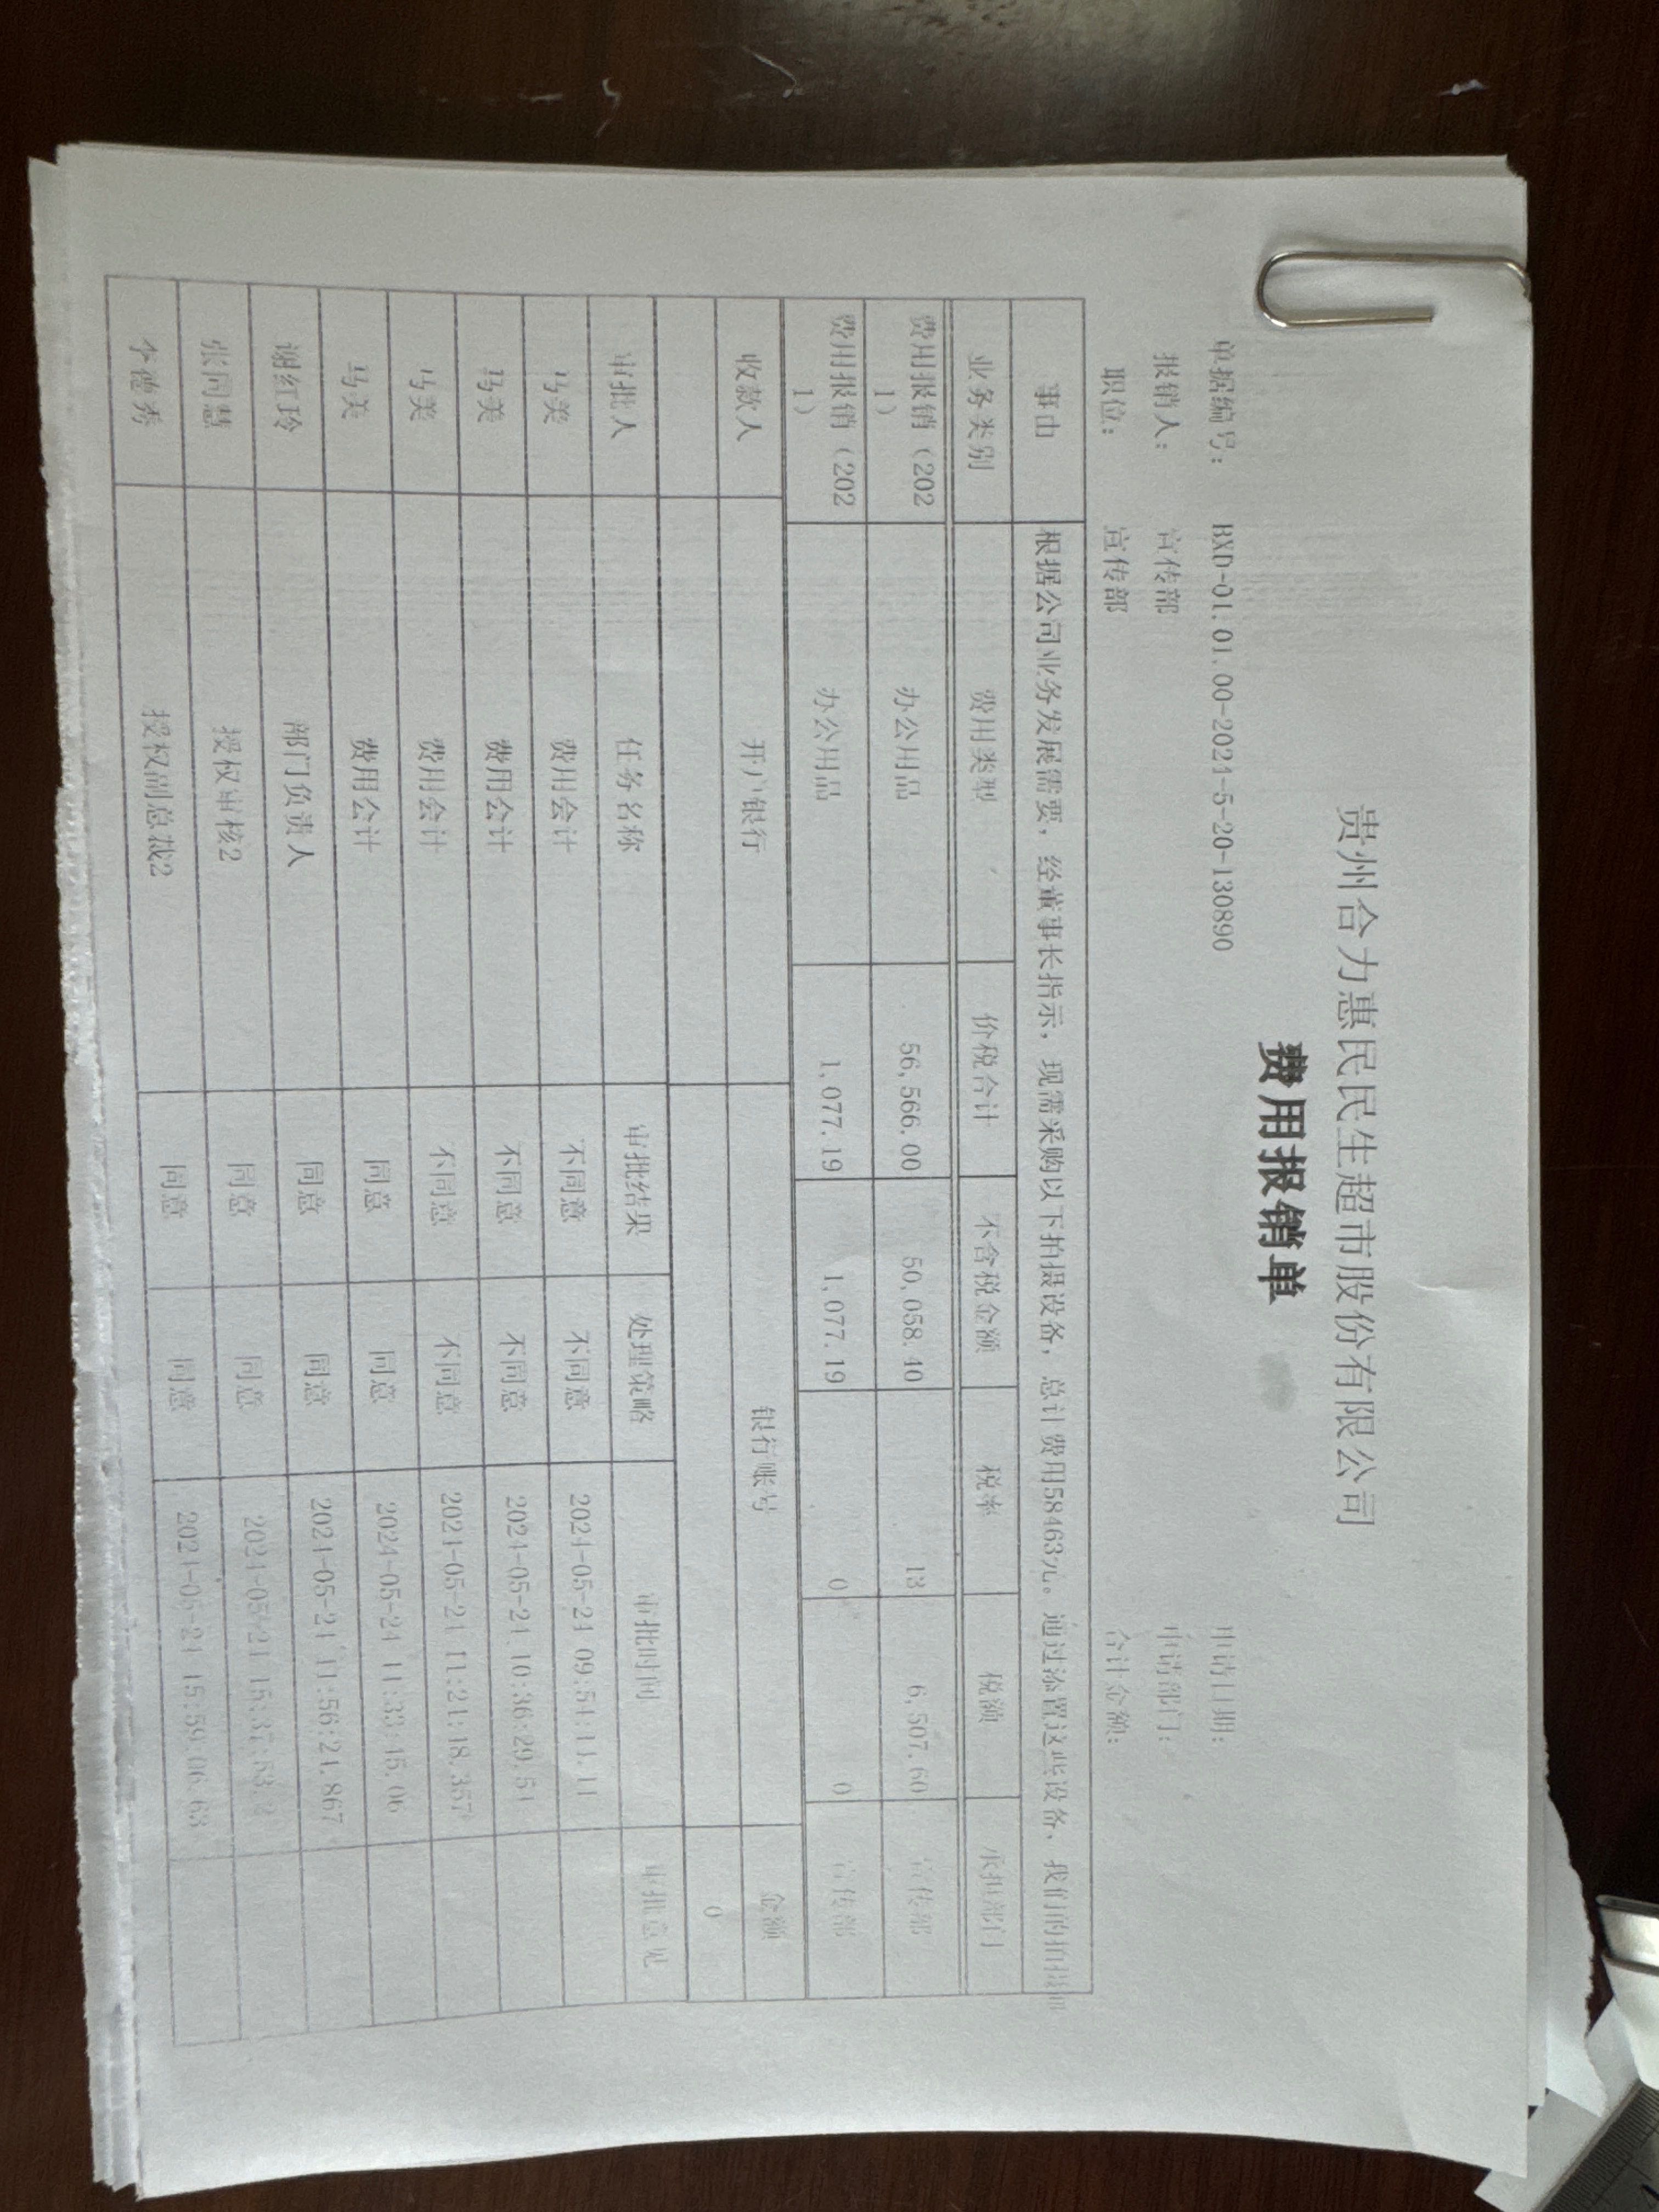 贵州合力惠民民生超市股份有限公司
费用报销单
单据编号： BXD-01.01.00-2024-5-20-130890 申请日期：
报销人： 宣传部 申请部门：
职位： 宣传部 合计金额：
事由 根据公司业务发展需要，经董事长指示，现需采购以下拍摄设备，总计费用58463元。通过添置这些设备，我们的拍摄
业务类别 费用类型 价税合计 不含税金额 税率 税额 承担部门
费用报销（202 办公用品 56,566.00 50,058.40 13 6,507.60 宣传部
1）
费用报销（202 办公用品 1,077.19 1,077.19 0 0 宣传部
1）
收款人 开户银行 银行账号 金额
0
审批人 任务名称 审批结果 处理策略 审批时间 审批意见
马美 费用会计 不同意 不同意 2024-05-24 09:54:14.11
马美 费用会计 不同意 不同意 2024-05-24 10:36:29.54
马美 费用会计 不同意 不同意 2024-05-24 11:21:18.357
马美 费用会计 同意 同意 2024-05-24 11:33:45.06
谢红玲 部门负责人 同意 同意 2024-05-24 11:56:24.867
张同慧 授权审核2 同意 同意 2024-05-24
李德秀 授权副总裁2 同意 同意 2024-05-24 15:59:06.63